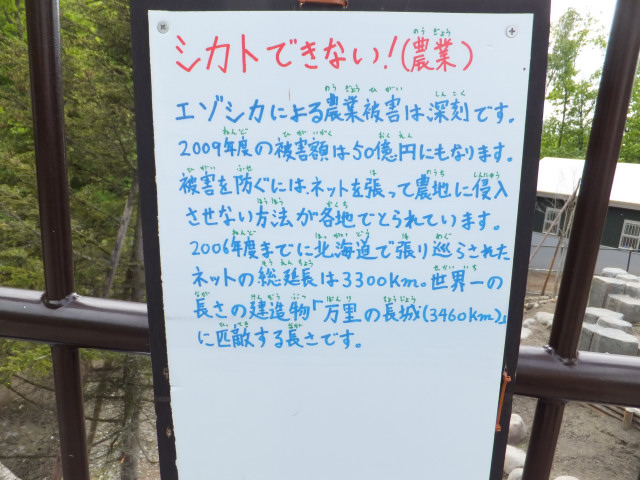 シカトできない!(農業)
エゾシカによる農業被害は深刻です。
2009年度の被害額は50億円にもなります。
被害を防ぐには、ネットを張って農地に侵入
させない方法が各地でとられています。
2006年度までに北海道で張り巡らされた
ネットの総延長は3300km。世界一の
長さの建造物「万里の長城(3460km)」
に匹敵する長さです。